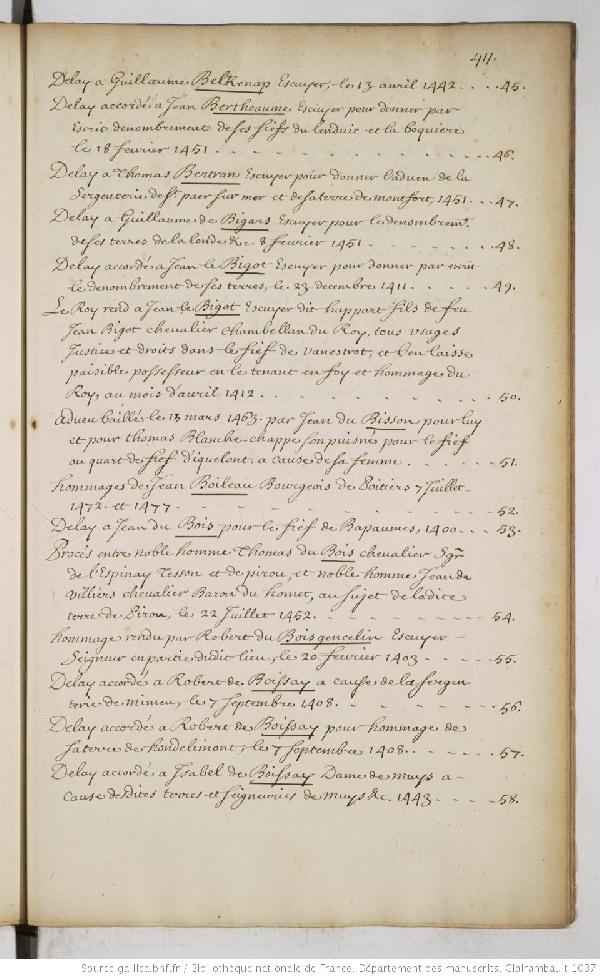 411.
Delay a Guillaume BelKenap Escuyer, le 13 avril 1442 . . . . 45.
Delay accordé a Jean Bertheaume Escuyer pour donner par
Escrit denombrement de ses fiefs du lenduic et la boquiere
le 18 fevrier 1451 . . . . . . . . . . 46.
Delay a Thomas Bertran Escuyer pour donner l'adveu de la
Sergenterie de St. paer sur mer et de sa terre de montfort, 1451 . . . 47.
Delay a Guillaume de Bigars Escuyer pour le denombremt.
de ses terres de la londe &c 8 fevrier 1451 . . . . . 48.
Delay accordé a Jean le Bigot Escuyer pour donner par escrit
le denombrement de ses terres, le 23 decembre 1411 . . . . 49.
Le Roy rend a Jean le Bigot Escuyer dit happart fils de feu
Jean Bigot chevalier Chambellan du Roy, tous usages
Justice et droits dans le fief de vanestrot, et l'en laisse
paisible possesseur en le tenant en foy et hommage du
Roy, au mois d'avril 1412 . . . . . . . . 50.
adveu baillé le 13 mars 1463. par Jean du Bisson pour luy
et pour Thomas Blanche-chappe son puisné pour le fief
ou quart de fief d'iquelont, a cause de sa femme . . . . 51.
hommages de Jean Boileau Bourgeois de Poitiers 7 Juillet
1472. et 1477 . . . . . . . . . . 52.
Delay a Jean du Bois pour le fief de Bapaumes, 1400 . . . 53.
Procés entre noble homme Thomas du Bois chevalier Sgr
de l'Espinay Tesson et de pirou, et noble homme Jean de
Villiers chevalier Baron du homet, au sujet de ladite
terre de Pirou, le 22 Juillet 1452 . . . . . . 54.
hommage rendu par Robert du Boisgencelin Escuyer
Seigneur en partie dudit lieu, le 20 fevrier 1403 . . . . 55.
Delay accordé a Robert de Boissay a cause de la sergen
terie de minieu, le 7 septembre 1408 . . . . . . 56.
Delay accordé a Robert de Boissay pour hommage de
sa terre de hondelimont, le 7 septembre 1408 . . . . . 57.
Delay accordé a Isabel de Boissay Dame de muys a
cause desdites terres et seigneuries de muys &c. 1443 . . . . 58.
Source gallica.bnf.fr / Bibliothèque nationale de France. Département des manuscrits. Clairambault 1037